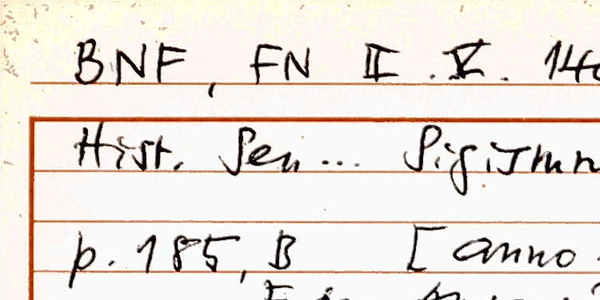 BNF, FN II.V. 140
Hist. Sen... Sigismun
p. 185, B [anno